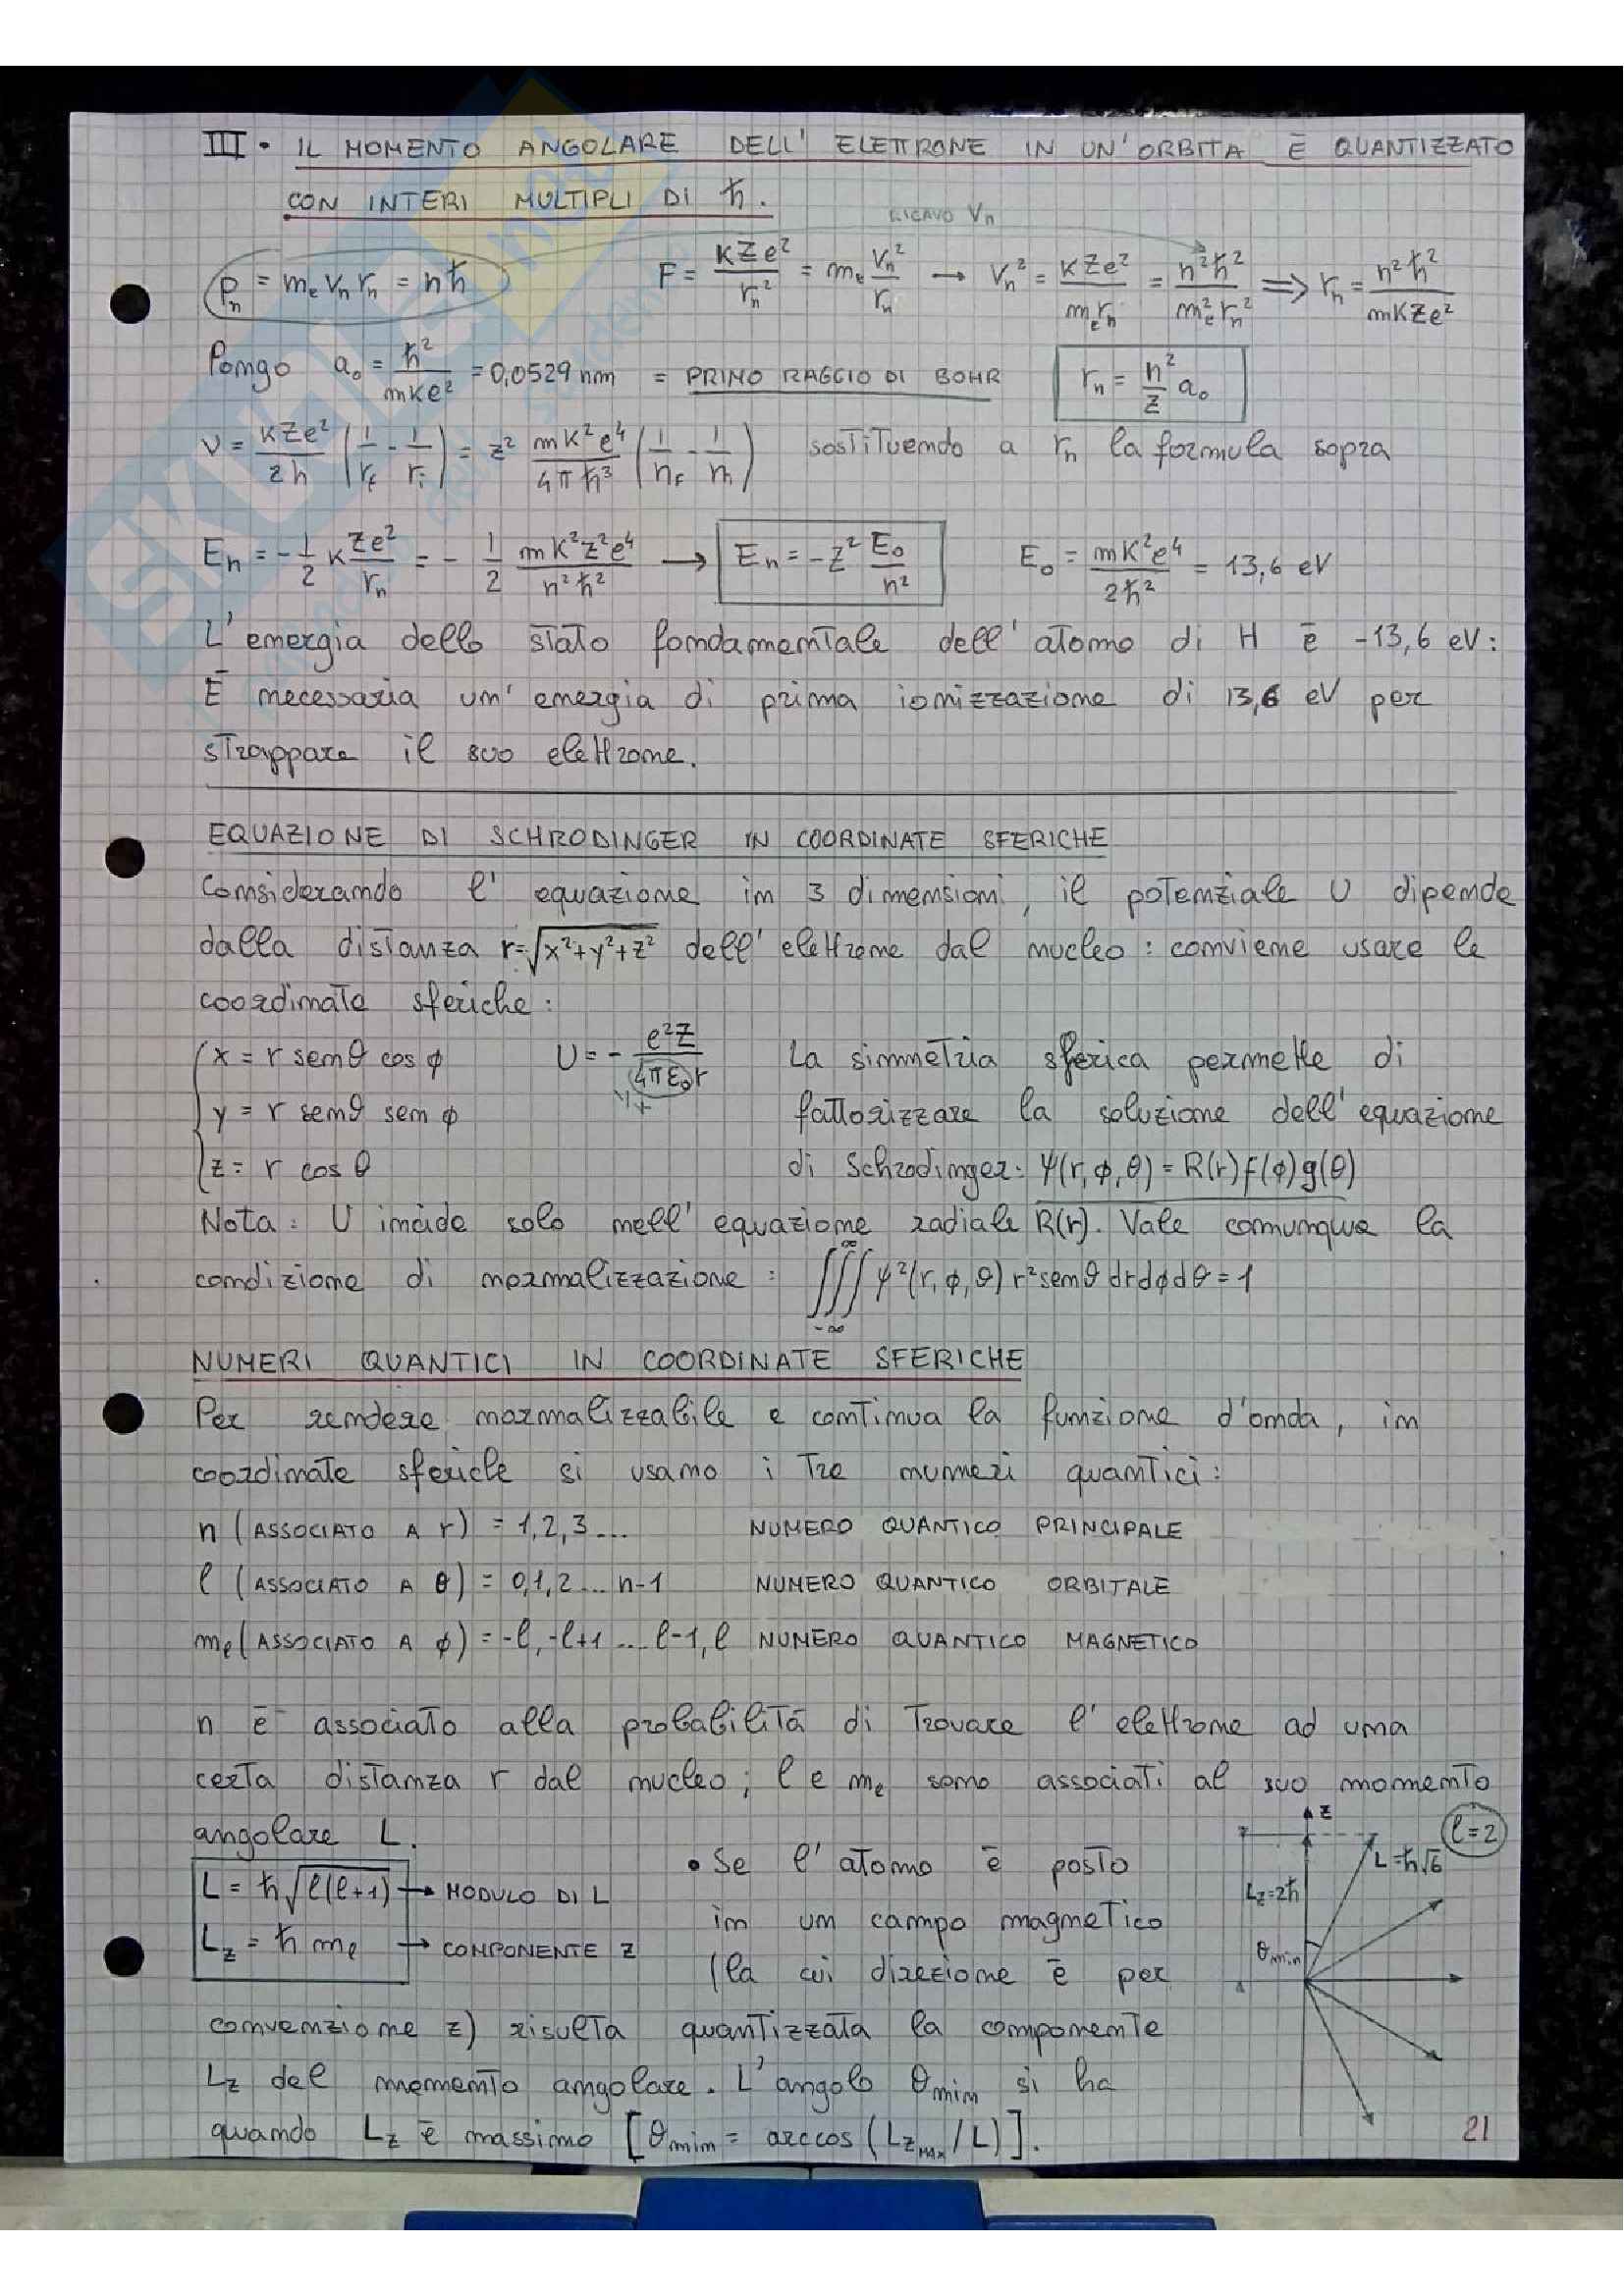 III. IL MOMENTO ANGOLARE DELL' ELETTRONE IN UN'ORBITA È QUANTIZZATO
CON INTERI MULTIPLI DI ħ.
RICAVO Vn
Pn = me Vn rn = nħ F = KZe²/rn² = me Vn²/rn → Vn² = KZe²/me rn = n²ħ²/me² rn² ⟹ rn = n²ħ²/mKZe²
Pongo a₀ = ħ²/mKe² = 0,0529 nm = PRIMO RAGGIO DI BOHR rn = n²/Z a₀
ν = KZe²/2h (1/rf - 1/ri) = Z² mK²e⁴/4πħ³ (1/nf - 1/ni) sostituendo a rn la formula sopra
En = -1/2 K Ze²/rn = - 1/2 mK²Z²e⁴/n²ħ² → En = -Z² E₀/n² E₀ = mK²e⁴/2ħ² = 13,6 eV
L'energia dello stato fondamentale dell'atomo di H è -13,6 eV:
È necessaria un'energia di prima ionizzazione di 13,6 eV per
strappare il suo elettrone.
EQUAZIONE DI SCHRODINGER IN COORDINATE SFERICHE
Considerando l'equazione in 3 dimensioni, il potenziale U dipende
dalla distanza r=√x²+y²+z² dell'elettrone dal nucleo: conviene usare le
coordinate sferiche:
x = r senθ cos ϕ U = - e²Z/4πε₀r La simmetria sferica permette di
y = r senθ sen ϕ fattorizzare la soluzione dell'equazione
z = r cos θ di Schrodinger: ψ(r,ϕ,θ) = R(r)f(ϕ)g(θ)
Nota: U incide solo nell'equazione radiale R(r). Vale comunque la
condizione di normalizzazione: ∭ ψ²(r,ϕ,θ) r² senθ dr dϕ dθ = 1
∞
-∞
NUMERI QUANTICI IN COORDINATE SFERICHE
Per rendere normalizzabile e continua la funzione d'onda, in
coordinate sferiche si usano i tre numeri quantici:
n (ASSOCIATO A r) = 1,2,3... NUMERO QUANTICO PRINCIPALE
ℓ (ASSOCIATO A θ) = 0,1,2...n-1 NUMERO QUANTICO ORBITALE
mℓ (ASSOCIATO A ϕ) = -ℓ,-ℓ+1...ℓ-1,ℓ NUMERO QUANTICO MAGNETICO
n è associato alla probabilità di trovare l'elettrone ad una
certa distanza r dal nucleo; ℓ e mℓ sono associati al suo momento
angolare L.
L = ħ√ℓ(ℓ+1) → MODULO DI L
Lz = ħ mℓ → COMPONENTE Z
• Se l'atomo è posto
in un campo magnetico
(la cui direzione è per
convenzione z) risulta quantizzata la componente
Lz del momento angolare. L'angolo θmin si ha
quando Lz è massimo [θmin = arccos (LzMAX/L)].
z
ℓ=2
L=ħ√6
Lz=2ħ
θmin
21
SKUOLA.net